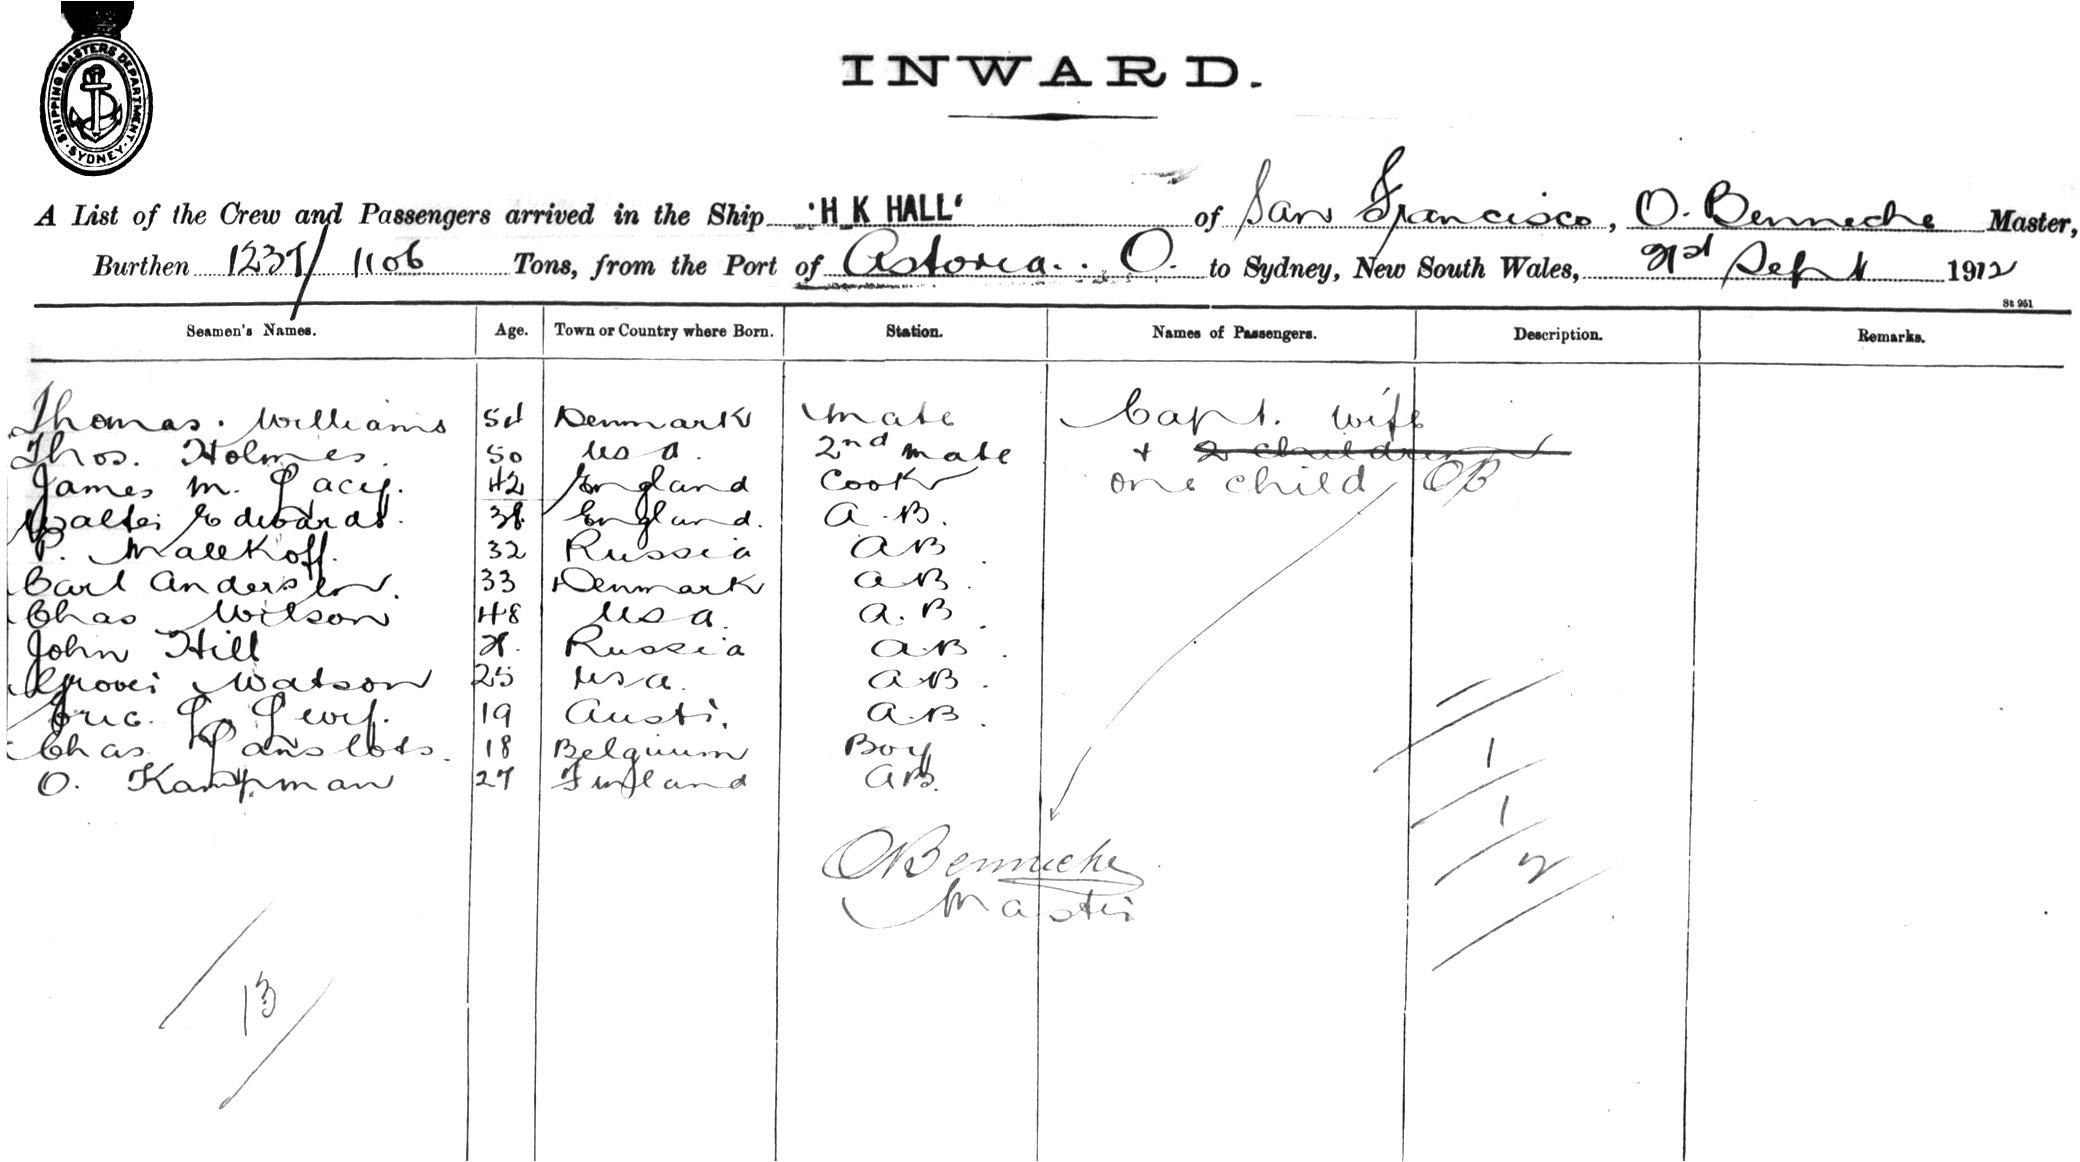 SHIPPING MASTERS DEPARTMENT · SYDNEY ·
INWARD.
A List of the Crew and Passengers arrived in the Ship 'H K HALL' of San Francisco, O. Benneche Master,
Burthen 1237/1106 Tons, from the Port of Astoria. O. to Sydney, New South Wales, Sept 1912
St 951
Seamen's Names. Age. Town or Country where Born. Station. Names of Passengers. Description. Remarks.
Thomas. Williams Denmark Mate Capt. wife
Thos. Holmes. 50 USA. 2nd Mate + 2 children
James M. Lacey. 42 England Cook one child OB
Walter Edwards. 38 England. A.B.
P. Malekoff. 32 Russia AB
Carl Anderson. 33 Denmark AB.
Chas Wilson 48 USA. A.B.
John Hill Russia AB.
Grover Watson 25 USA. AB.
Eric L. Levy. 19 Aust. A.B.
Chas 18 Belgium Boy
O. Kampman 27 Finland AB.
OBenneche
Master
1
1
2
13